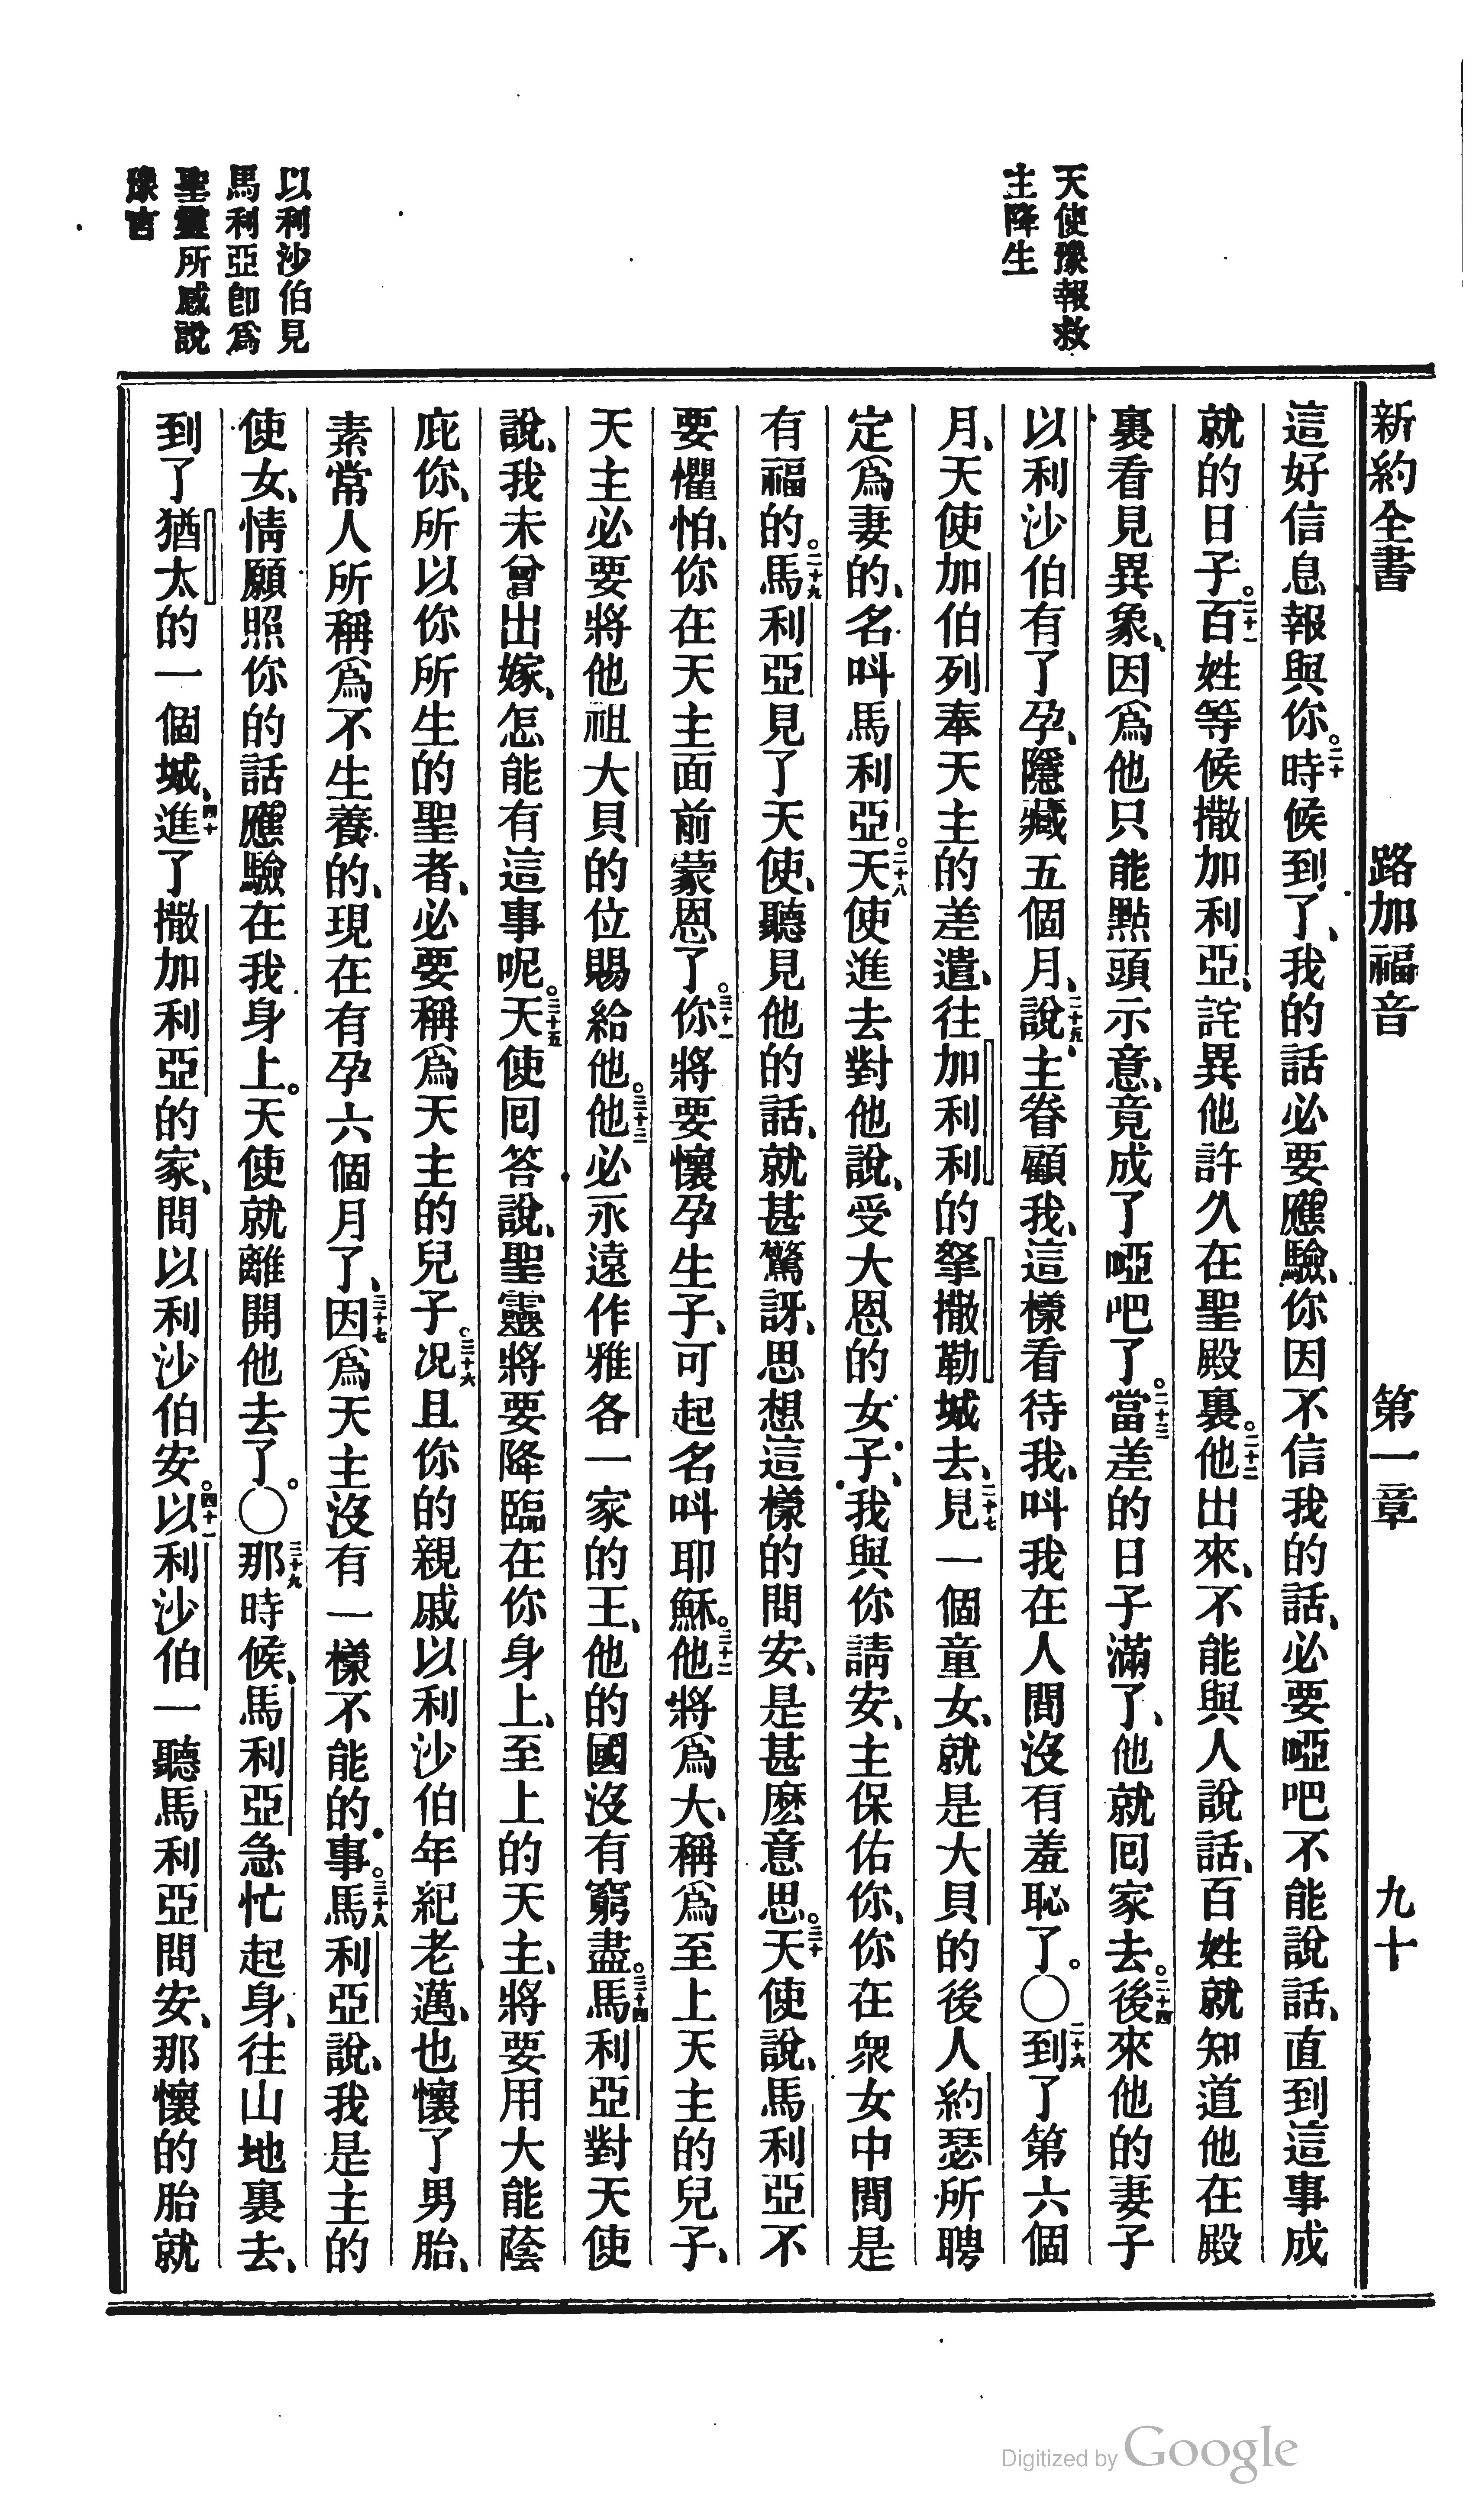 新約全書 路加福音 第一章 九十
天使豫報救
主降生
以利沙伯見
馬利亞卽爲
聖靈所感說
豫言
這好信息報與你。二十時候到了、我的話必要應驗、你因不信我的話、必要啞吧不能說話、直到這事成
就的日子。二十一百姓等候撒加利亞、詫異他許久在聖殿裏。二十二他出來、不能與人說話、百姓就知道他在殿
裏看見異象、因爲他只能點頭示意、竟成了啞吧了。二十三當差的日子滿了、他就回家去。二十四後來他的妻子
以利沙伯有了孕、隱藏五個月、二十五說、主眷顧我、這樣看待我、叫我在人間沒有羞恥了。〇二十六到了第六個
月、天使加伯列奉天主的差遣、往加利利的拏撒勒城去、二十七見一個童女、就是大貝的後人約瑟所聘
定爲妻的、名叫馬利亞。二十八天使進去對他說、受大恩的女子、我與你請安、主保佑你、你在衆女中間是
有福的。二十九馬利亞見了天使、聽見他的話、就甚驚訝、思想這樣的問安、是甚麽意思。三十天使說、馬利亞不
要懼怕、你在天主面前蒙恩了。三十一你將要懷孕生子、可起名叫耶穌。三十二他將爲大、稱爲至上天主的兒子、
天主必要將他祖大貝的位賜給他。三十三他必永遠作雅各一家的王、他的國沒有窮盡。三十四馬利亞對天使
說、我未曾出嫁、怎能有這事呢。三十五天使回答說、聖靈將要降臨在你身上、至上的天主、將要用大能蔭
庇你、所以你所生的聖者、必要稱爲天主的兒子。三十六况且你的親戚以利沙伯年紀老邁、也懷了男胎、
素常人所稱爲不生養的、現在有孕六個月了、三十七因爲天主沒有一樣不能的事。三十八馬利亞說、我是主的
使女、情願照你的話應驗在我身上。天使就離開他去了。〇三十九那時候、馬利亞急忙起身、往山地裏去、
到了猶太的一個城、四十進了撒加利亞的家、問以利沙伯安。四十一以利沙伯一聽馬利亞問安、那懷的胎就
Digitized by Google